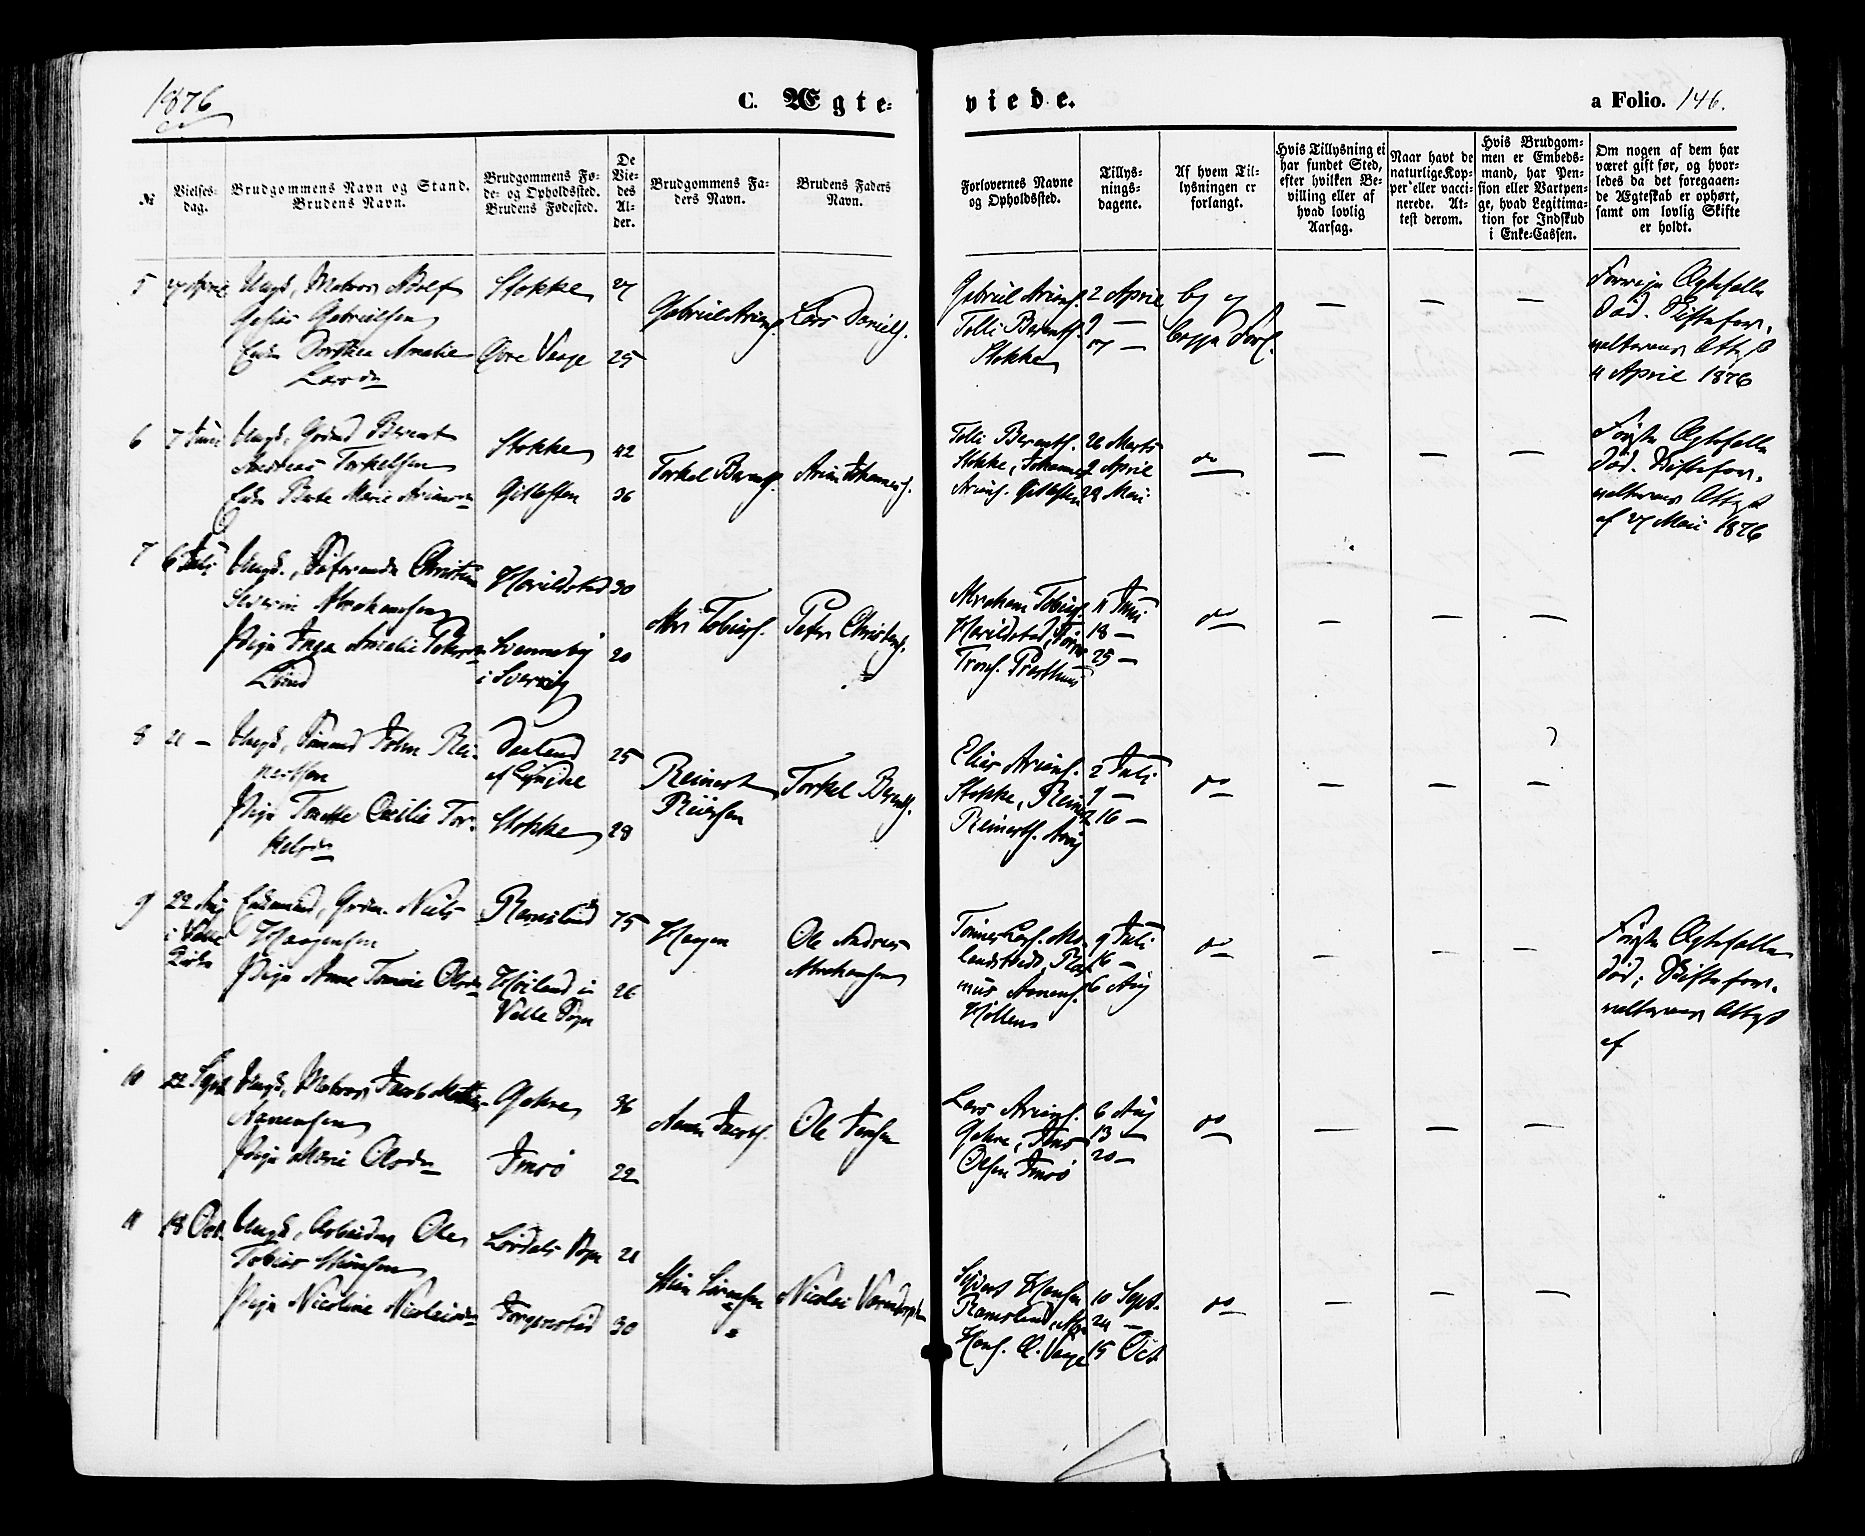 1876
C. Ægte-
viede.
a Folio. 146.
№
Vielses-
dag.
Brudgommens Navn og Stand.
Brudens Navn.
Brudgommens Fø-
de- og Opholdssted.
Brudens Fødested.
De
Vie-
des
Al-
der.
Brudgommens Fa-
ders Navn.
Brudens Faders
Navn.
Forlovernes Navne
og Opholdssted.
Tillys-
nings-
dagene.
Af hvem Til-
lysningen er
forlangt.
Hvis Tillysning ei
har fundet Sted,
efter hvilken Be-
villing eller af
hvad lovlig
Aarsag.
Naar havt de
naturlige Kop-
per eller vacci-
nerede. At-
test derom.
Hvis Brudgom-
men er Embeds-
mand, har Pen-
sion eller Vartpen-
ge, hvad Legitima-
tion for Indskud
i Enke-Cassen.
Om nogen af dem har
været gift før, og hvor-
ledes da det foregaaen-
de Ægteskab er ophørt,
samt om lovlig Skifte
er holdt.
5
27 April
Ungk, Matros Adolf
Gabrielsen
Enke Dorthea Amalie
Larsdn
Stokke
Øvre Vaage
27
25
Gabriel Arians.
Lars Daniels.
Gabriel Arians.
Tolli Berents.
Stokke
2 April
9 —
17 —
— — —
Forrige Ægtefælle
død. Skiftefor-
valterens Attest
4 April 1876
6
7 Juni
Ungk, Grdmd Berent
Andreas Torkelsen
Enke Berte Marie Ariansdn
Stokke
Gitlesten
42
36
Torkel Berents.
Arian Johannes.
Tolli Berents.
Stokke, Johannes
Arians. Gitlesten
26 Marts
2 April
28 Mai
do
— — —
Første Ægtefælle
død. Skiftefor-
valterens Attest
af 27 Mai 1876
7
6 Juli
Ungk., Christian
Severin Abrahamsen
Pige Inga Amalie Petersdn
Lund
Harildstad
i Sverrig
30
20
Abr. Tobias.
Peter Christens.
Abraham Tobias.
Harildstad,
Presthuus
11 Juni
18 —
25 —
do
— — —
8
21 —
Ungk, Sømand John Rei-
nertsen
Pige Tonette Cecilie Tor-
kelsdn
af Lyngdal
Stokke
25
28
Reinert
Reiersen
Torkel Berents.
Elias Arians.
Stokke, Reinert
Reinerts.
2 Juli
9 —
16 —
do
— — —
9
22 Aug
i Valle
Kirke
Enkemand, Grdm. Niels
Haagensen
Pige Anne Tomine Olsdn
Ramsland
Høiland i
Valle Sogn
75
26
Haagen
Ole Andreas
Abrahamsen
Tønnes Lars.
9 Juli
16 —
6 Aug
do
— — —
Første Ægtefælle
død; Skiftefor-
valterens Attest
af
10
22 Sept
Ungk, Matros Jacob
Aanensen
Pige Marie Olsdn
Gahre
Imsø
36
22
Aanen Jacobs.
Ole Jensen
Lars Arians.
Gahre, Jens
Olsen Imsø
6 Aug
13 —
20 —
do
— — —
11
18 Oct.
Ungk, Arbeider Ole
Tobias Stiansen
Pige Nicoline Nicolaisdn
Sogn
Jorgenstad
21
30
Nicolai
Sivert Hansen
Ramsland,
Hans. Ø. Vaage
10 Sept.
24 —
15 Oct
do
— — —